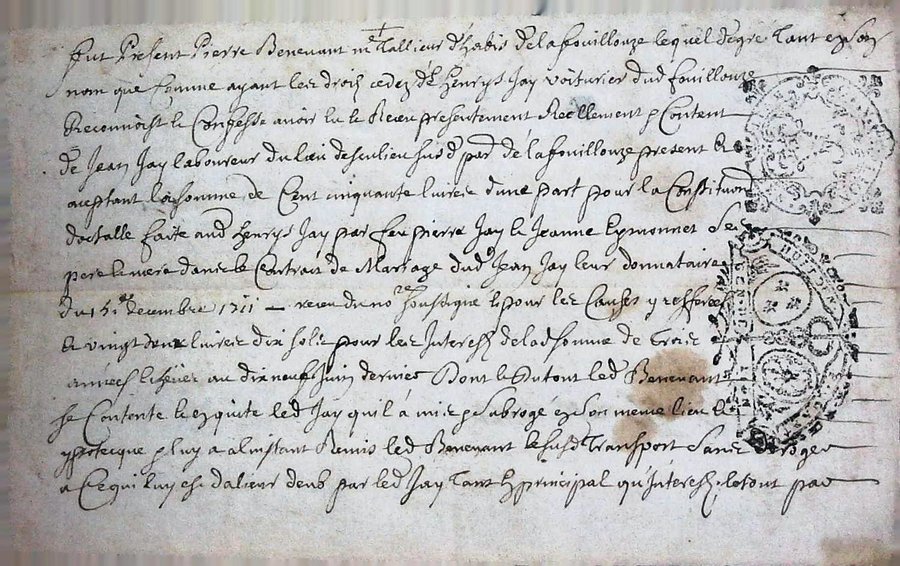 fut Present Pierre Benevant mᵉ Tallieur d'habis de lafouillouze lequel de gré Tant en son
nom que comme ayant les droits cedez de henrys Jay voiturier dud fouillouze
Reconnoist & Confesse avoir eu & Receu presentement Reellement & Content
de Jean Jay laboureur du lieu de sud par de lafouillouze present &
aceptant la somme de Cent cinquante livres d'une part pour la Constitution
dotalle faite aud henrys Jay par feu pierre Jay & Jeanne Eymonnet Se
pere & mere dans le Contrait de Mariage dud Jean Jay leur donnataire
du 15 decembre 1711 receu de no pour les Causes y refferees
Et vingt deux livres dix sols pour les Interests de lad somme de Trois
années echeues au dixneuf Juin dernier Dont & du tout led Benevant
se Contante & en quite led Jay qu'il à mis & Subrogé en Son meme lieu &
ypotecque & luy a à l'instant Remis led Benevant le susd Transport Sans deroger
a Ce qui luy est d'alieur deub par led Jay Tant en principal qu'Interests, le tout par